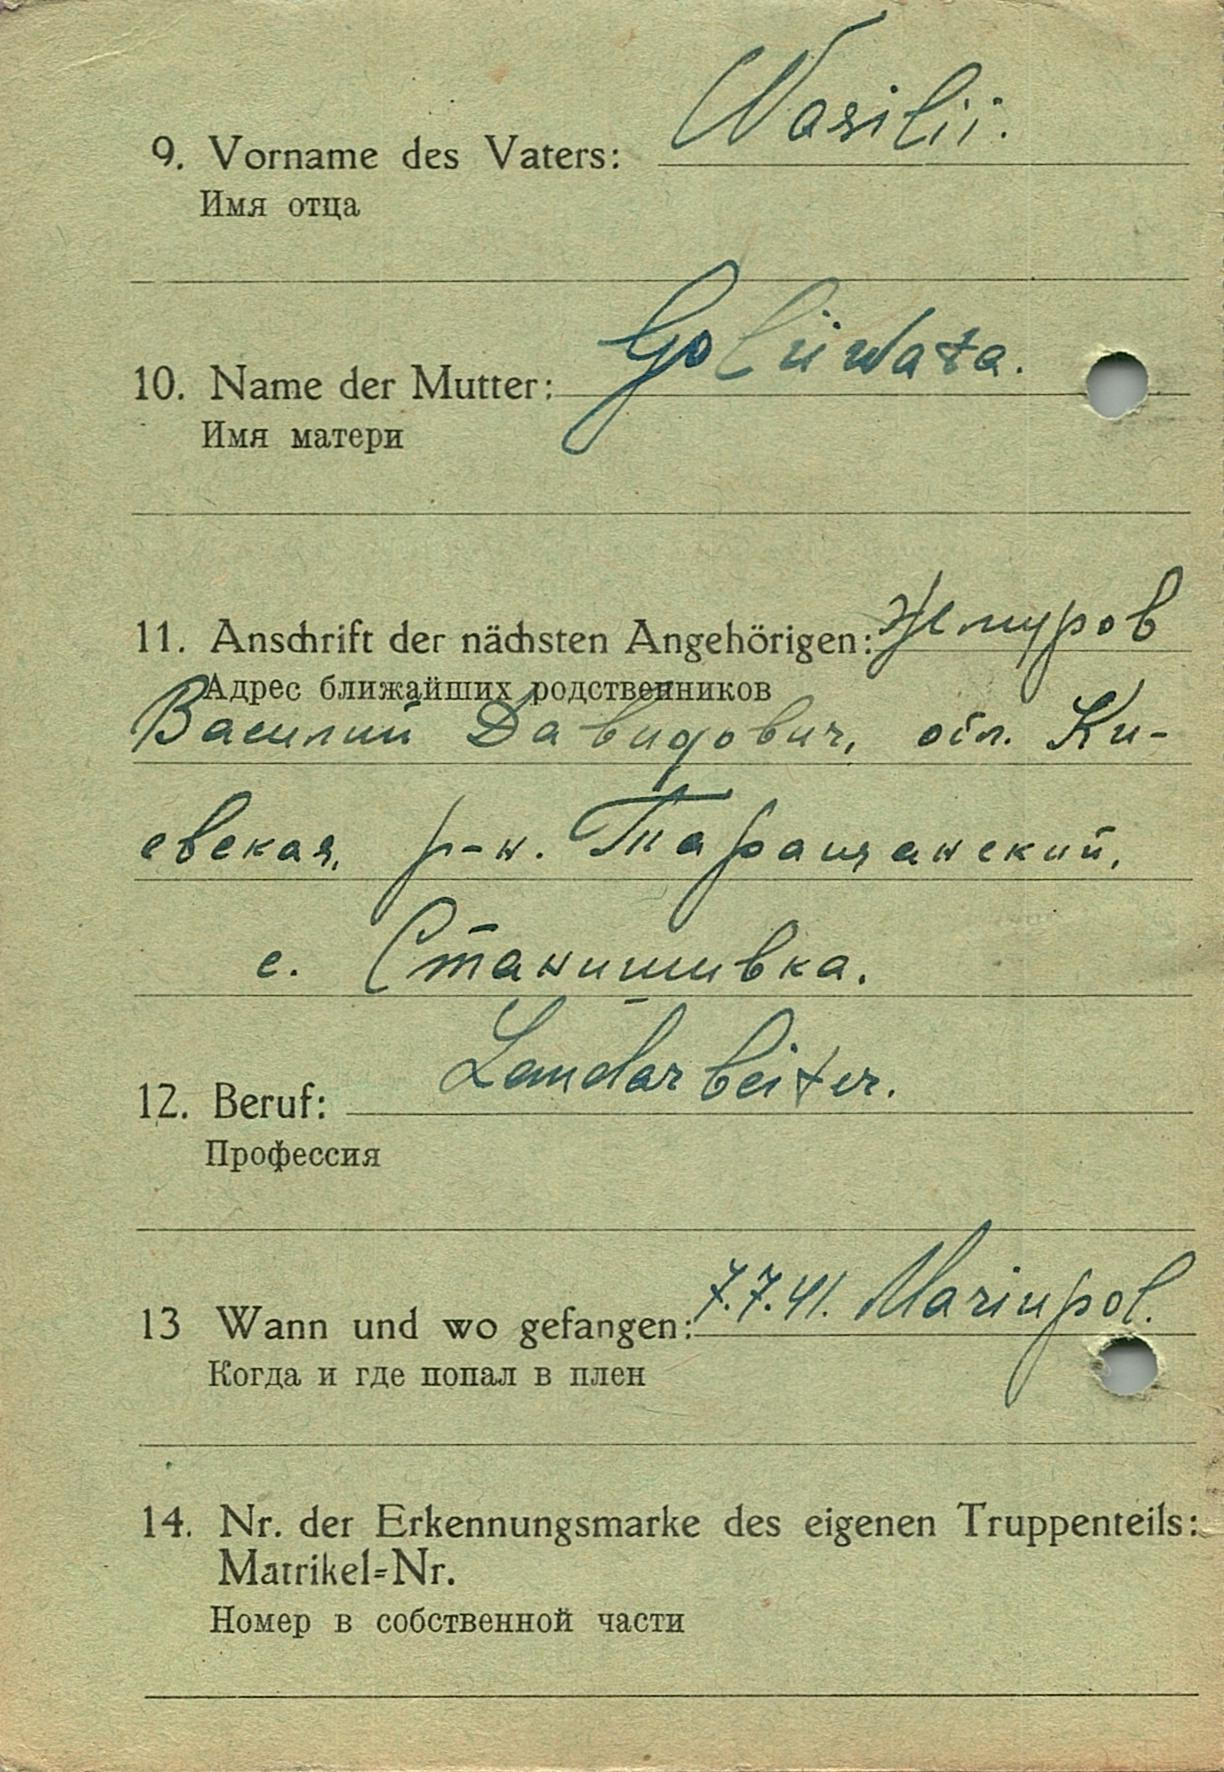 9. Vorname des Vaters: Wasilii.
Имя отца
10. Name der Mutter: Goliwata.
Имя матери
11. Anschrift der nächsten Angehörigen: Жмуров
Адрес ближайших родственников
Василий Давидович, обл. Ки-
евская, р-н. Таращанский,
с. Станишивка.
12. Beruf: Landarbeiter.
Профессия
13 Wann und wo gefangen: 7.7.41. Mariupol.
Когда и где попал в плен
14. Nr. der Erkennungsmarke des eigenen Truppenteils:
Matrikel=Nr.
Номер в собственной части